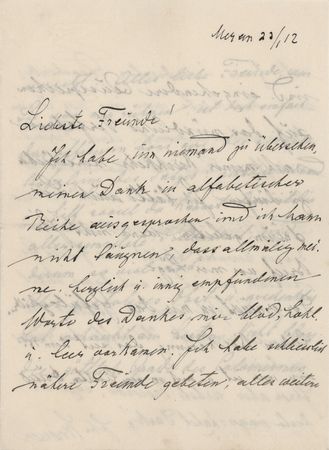 Meran 22/1, 12
Liebste Freunde!
Ich habe, um niemand zu übersehen,
meinen Dank in alfabetischer
Reihe ausgesprochen und ich kann
nicht läugnen, dass allmälig mei-
ne herzlich u. innig empfundenen
Worte des Dankes mir blöd, hohl
u. leer vorkamen. Ich habe schliesslich
nähere Freunde gebeten, alle weitere